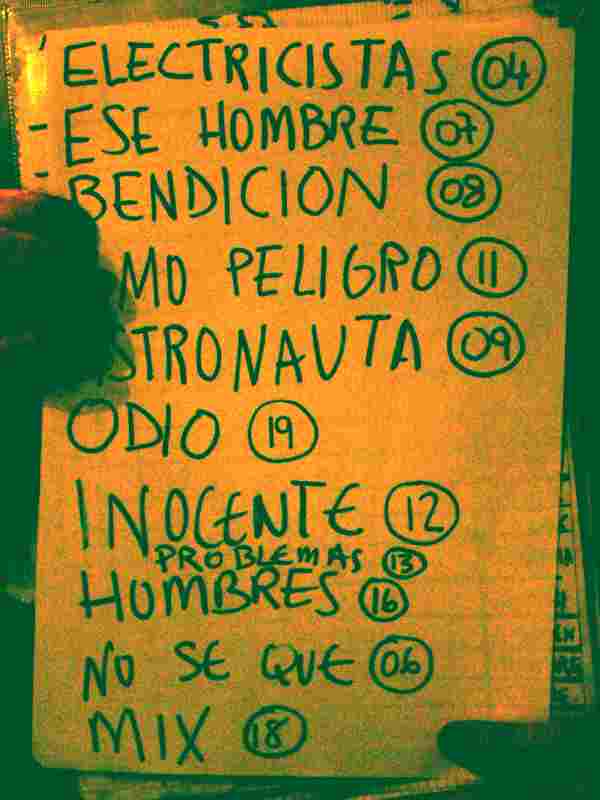 ELECTRICISTAS 04
- ESE HOMBRE 07
- BENDICION 08
MO PELIGRO 11
STRONAUTA 09
ODIO 19
INOCENTE 12
PROBLEMAS 13
HOMBRES 16
NO SE QUE 06
MIX 18